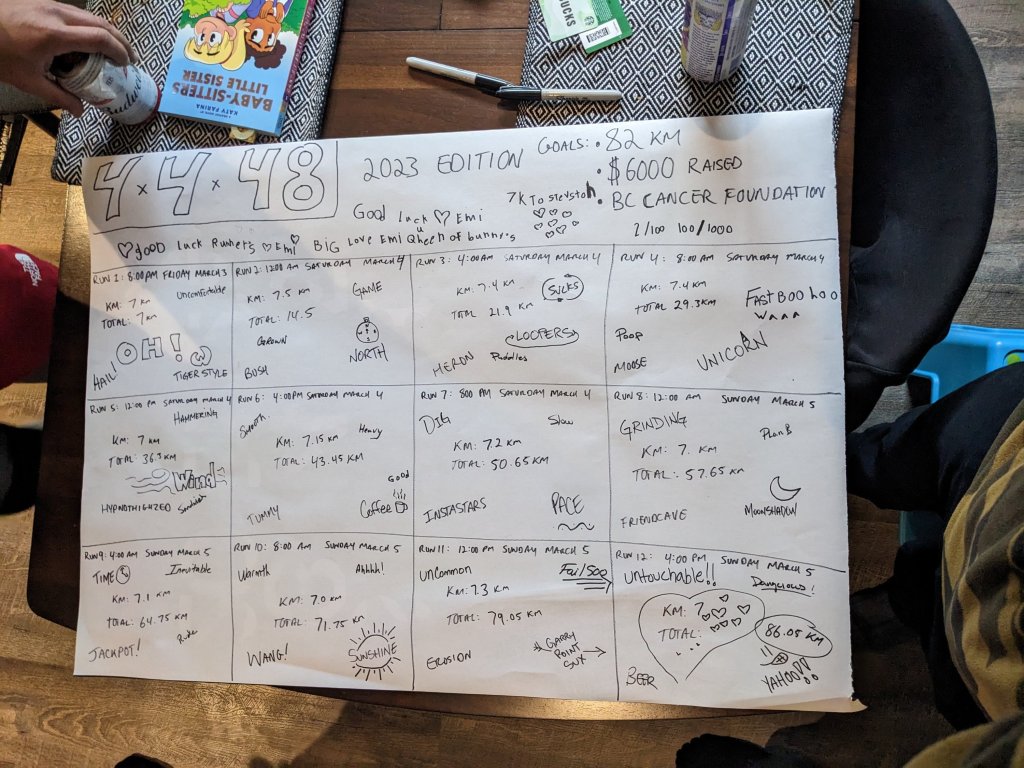 BABY-SITTERS
LITTLE SISTER
KATY FARINA
Budweiser
4 x 4 x 48
2023 EDITION
GOALS: • 82 KM
• $6000 RAISED
• BC CANCER FOUNDATION
7K To stevston
Good luck Emi
Good luck Runners Emi BIG Love Emi Queen of bunnys
2/100 100/1000
RUN 1: 8:00PM FRIDAY MARCH 3
KM: 7 KM
Uncomfortable
TOTAL: 7 KM
OH!
HAIL!
TIGER STYLE
RUN 2: 12:00 AM SATURDAY MARCH 4
KM: 7.5 KM
GAME
TOTAL: 14.5
GROWN
NORTH
BUSH
RUN 3: 4:00AM SATURDAY MARCH 4
KM: 7.4 KM
SILKS
TOTAL 21.9 KM
LOOPERS
HERON
Puddles
RUN 4: 8:00 AM SATURDAY MARCH 4
KM: 7.4 KM
TOTAL 29.3KM
FAST BOO hoo
Waaa
Poop
MOOSE
UNICORN
RUN 5: 12:00 PM SATURDAY MARCH 4
HAMMERING
KM: 7 KM
TOTAL: 36.3 KM
Wind
HYPNOTHIGHZED
Sandwich
RUN 6: 4:00PM SATURDAY MARCH 4
Support
KM: 7.15 KM
Heavy
TOTAL: 43.45 KM
Good
Coffee
TUMMY
RUN 7: 800 PM SATURDAY MARCH 4
DIG
Slow
KM: 7.2 KM
TOTAL: 50.65 KM
INSTASTARS
PACE
RUN 8: 12:00 AM SUNDAY MARCH 5
GRINDING
Plan B
KM: 7. KM
TOTAL: 57.65 KM
FRIENDCAVE
MOONSHADOW
RUN 9: 4:00 AM SUNDAY MARCH 5
TIME
Inevitable
KM: 7.1 KM
TOTAL: 64.75 KM
JACKPOT!
RUN 10: 8:00 AM SUNDAY MARCH 5
Warmth
Ahhhh!
KM: 7.0 KM
TOTAL: 71.75 KM
WANG!
SUNSHINE
RUN 11: 12:00 PM SUNDAY MARCH 5
UNCOMMON
KM: 7.3 KM
TOTAL: 79.05 KM
EROSION
GARRY
POINT
RUN 12: 4:00 PM SUNDAY MARCH 5
Untouchable!!
Dangerous!
KM: 7
TOTAL: ...
86.05 KM
BEER
YAHOO!!